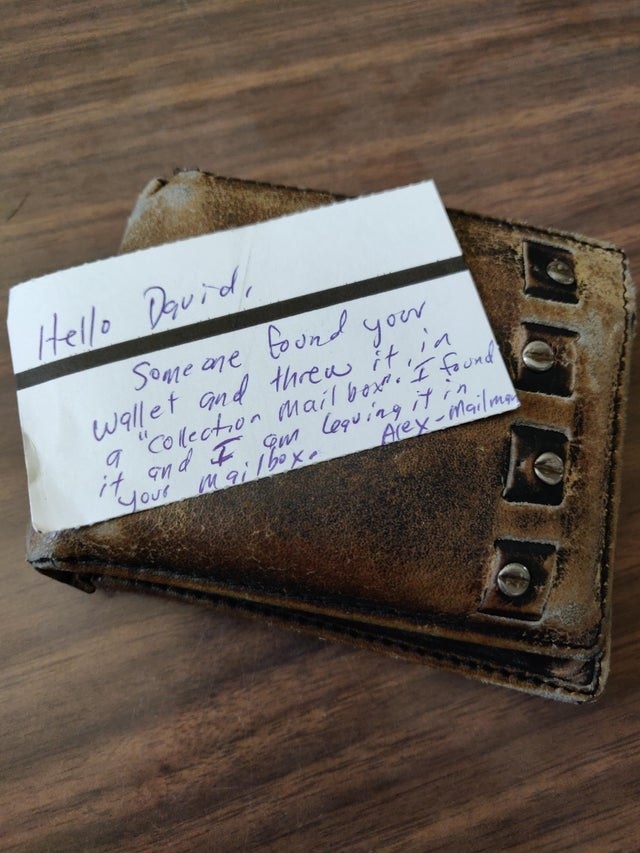 Hello David,
Someone found your
wallet and threw it in
a "collection mail box". I found
it and I am leaving it in
your mailbox.
Alex-mailman